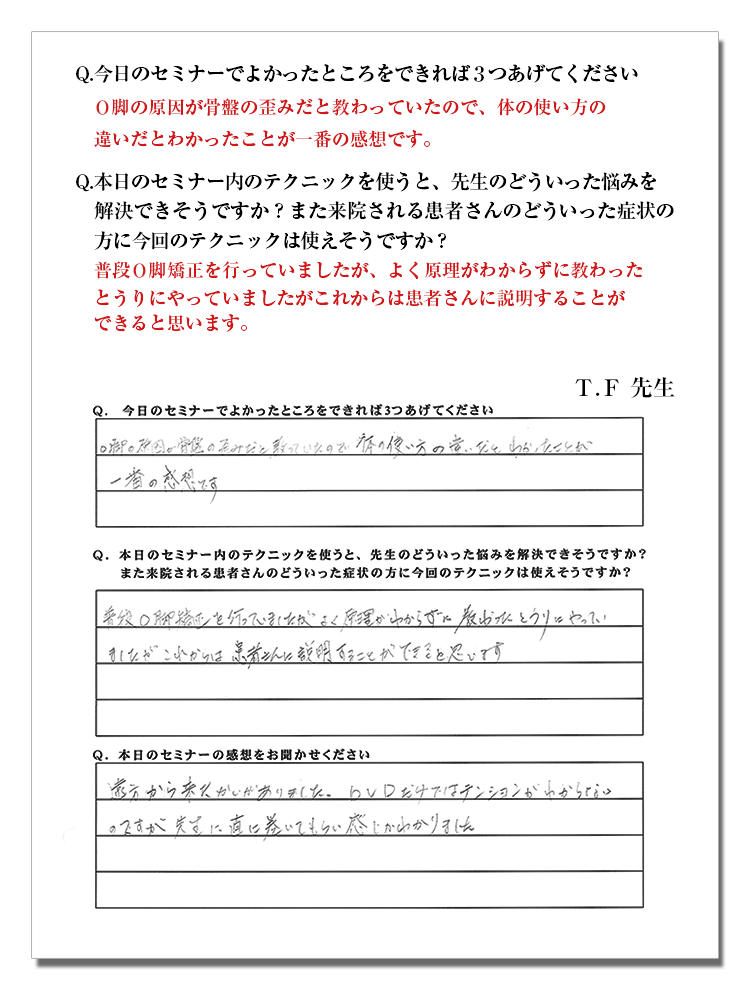 Q.今日のセミナーでよかったところをできれば３つあげてください
Ｏ脚の原因が骨盤の歪みだと教わっていたので、体の使い方の
違いだとわかったことが一番の感想です。
Q.本日のセミナー内のテクニックを使うと、先生のどういった悩みを
解決できそうですか？また来院される患者さんのどういった症状の
方に今回のテクニックは使えそうですか？
普段Ｏ脚矯正を行っていましたが、よく原理がわからずに教わった
とうりにやっていましたがこれからは患者さんに説明することが
できると思います。
Ｔ.Ｆ 先生
Q. 今日のセミナーでよかったところをできれば3つあげてください
O脚の原因が骨盤の歪みだと教っていたので 体の使い方の違いだと わかったことが
一番の感想です
Q. 本日のセミナー内のテクニックを使うと、先生のどういった悩みを解決できそうですか?
また来院される患者さんのどういった症状の方に今回のテクニックは使えそうですか?
普段O脚矯正を行っていましたがよく原理がわからずに 教わったとうりにやってい
ましたがこれからは 患者さんに説明することができると思います
Q. 本日のセミナーの感想をお聞かせください
遠方から来たかいがありました。DVDだけではテンションがわからない
のですが 先生に直に巻いてもらい感じがわかりました